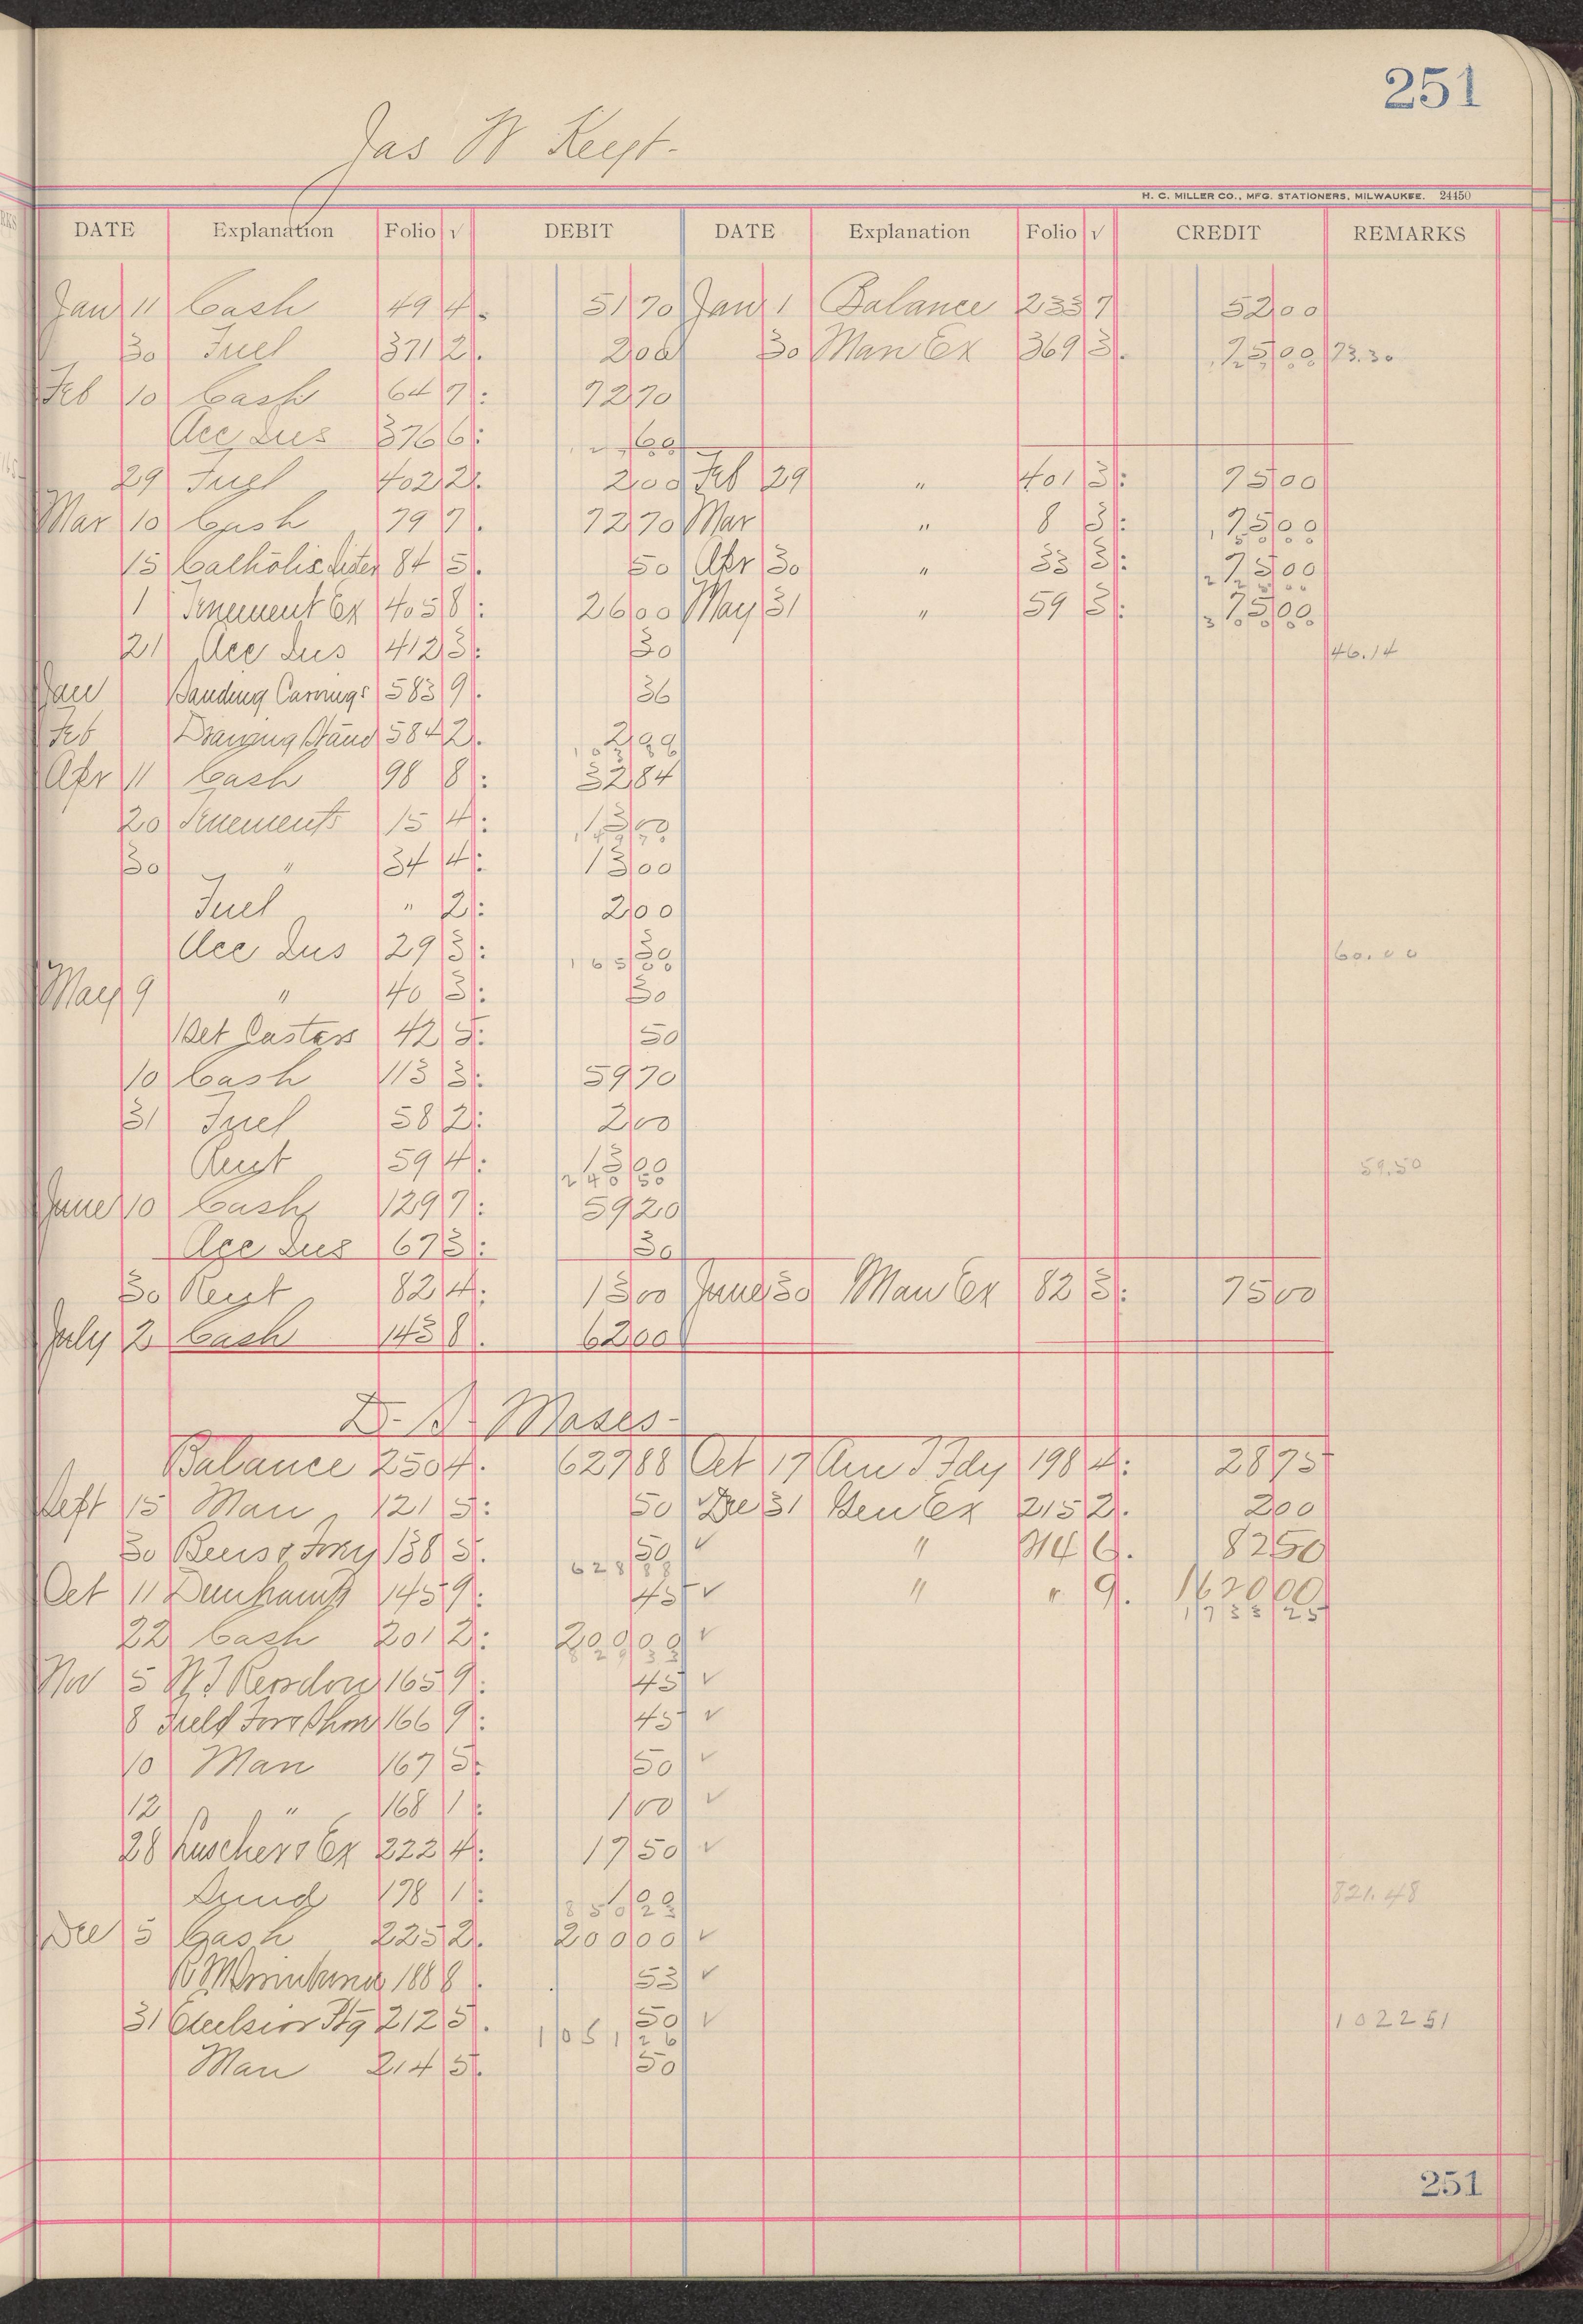 251
Jas W
H. C. MILLER CO., MFG. STATIONERS, MILWAUKEE. 24450
DATE Explanation Folio √ DEBIT DATE Explanation Folio √ CREDIT REMARKS
Jan 11 Cash 49 4. 51 70 Jan 1 Balance 233 7 52 00
30 Fuel 371 2. 2 00 30 Man Ex 369 3. 75 00 73.30
Feb 10 Cash 64 7: 72 70
Acc Ins 376 6: 60
29 Fuel 402 2. 2 00 Feb 29 " 401 3: 75 00
Mar 10 Cash 79 7. 72 70 Mar " 8 3: 75 00
15 84 5. 50 Apr 30 " 33 3: 75 00
1 Tenement Ex 405 8: 26 00 May 31 " 59 3: 75 00
21 Acc Ins 412 3: 30 46.14
Jan 583 9. 36
Feb Stand 584 2. 2 99
Apr 11 Cash 98 8: 32 84
20 Tenements 15 4: 13 00
30 " 34 4: 13 00
Fuel " 2: 2 00
Acc Ins 29 3: 30 60.00
May 9 " 40 3: 30
1 Set Casters 42 5: 50
10 Cash 113 3: 59 70
31 Fuel 58 2: 2 00
Rent 59 4: 13 00 59.50
243 50
June 10 Cash 129 7: 59 20
Acc Ins 67 3: 30
30 Rent 82 4: 13 00 June 30 Man Ex 82 3: 75 00
July 2 Cash 143 8. 62 00
D. A. Moses
Balance 250 4. 627 88 Oct 17 Am 198 4: 28 75
Sept 15 Man 121 5: 50 Dec 31 Gen Ex 215 2. 2 00
30 138 5. 50 √ " 214 6. 82 50
628 88
Oct 11 145 9: 45 √ " " 9. 1620 00
1733 25
22 Cash 201 2: 200 00 √
829 33
Nov 5 165 9: 45 √
8 166 9: 45 √
10 Man 167 5: 50 √
12 " 168 1: 1 00 √
28 Ex 222 4: 17 50 √
178 1: 1 00 821.48
850 23
Dec 5 Cash 225 2. 200 00 √
188 8. 53 √
31 Excelsior 212 5. 50 √ 1022 51
1051 26
Man 214 5. 50
251